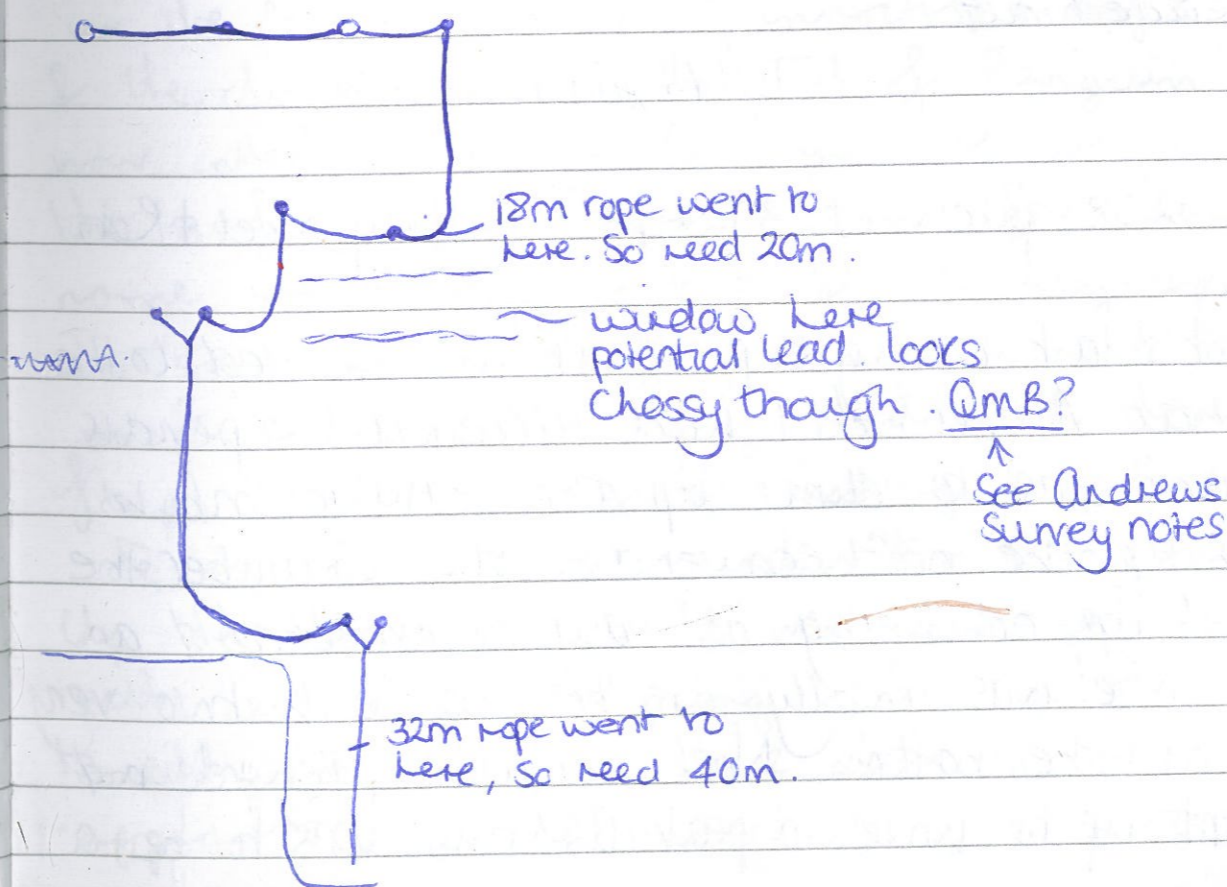 18m rope went to
here. So need 20m.
window here
potential lead. looks
Chossy though. QmB?
See Andrews
Survey notes
32m rope went to
here, so need 40m.